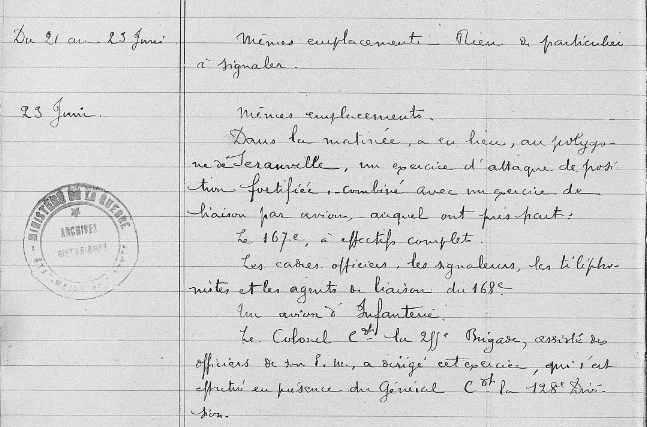 Du 21 au 23 Juin. Mêmes emplacements - Rien de particulier
à signaler.
23 Juin. Mêmes emplacements.
Dans la matinée, a eu lieu, au polygo-
ne de Jeranville, un exercice d'attaque de posi
tion fortifiée, combiné avec un exercice de
liaison par avion, auquel ont pris part :
Le 167e, à effectifs complets.
Les cadres officiers, les signaleurs, les télépho-
nistes et les agents de liaison du 168e
Un avion d'Infanterie.
Le Colonel Cdt la 255e Brigade, assisté des
officiers de son E.M., a dirigé cet exercice, qui s'est
effectué en présence du Général Cdt la 128e Divi-
sion.
MINISTERE DE LA GUERRE
ARCHIVES
HISTORIQUES